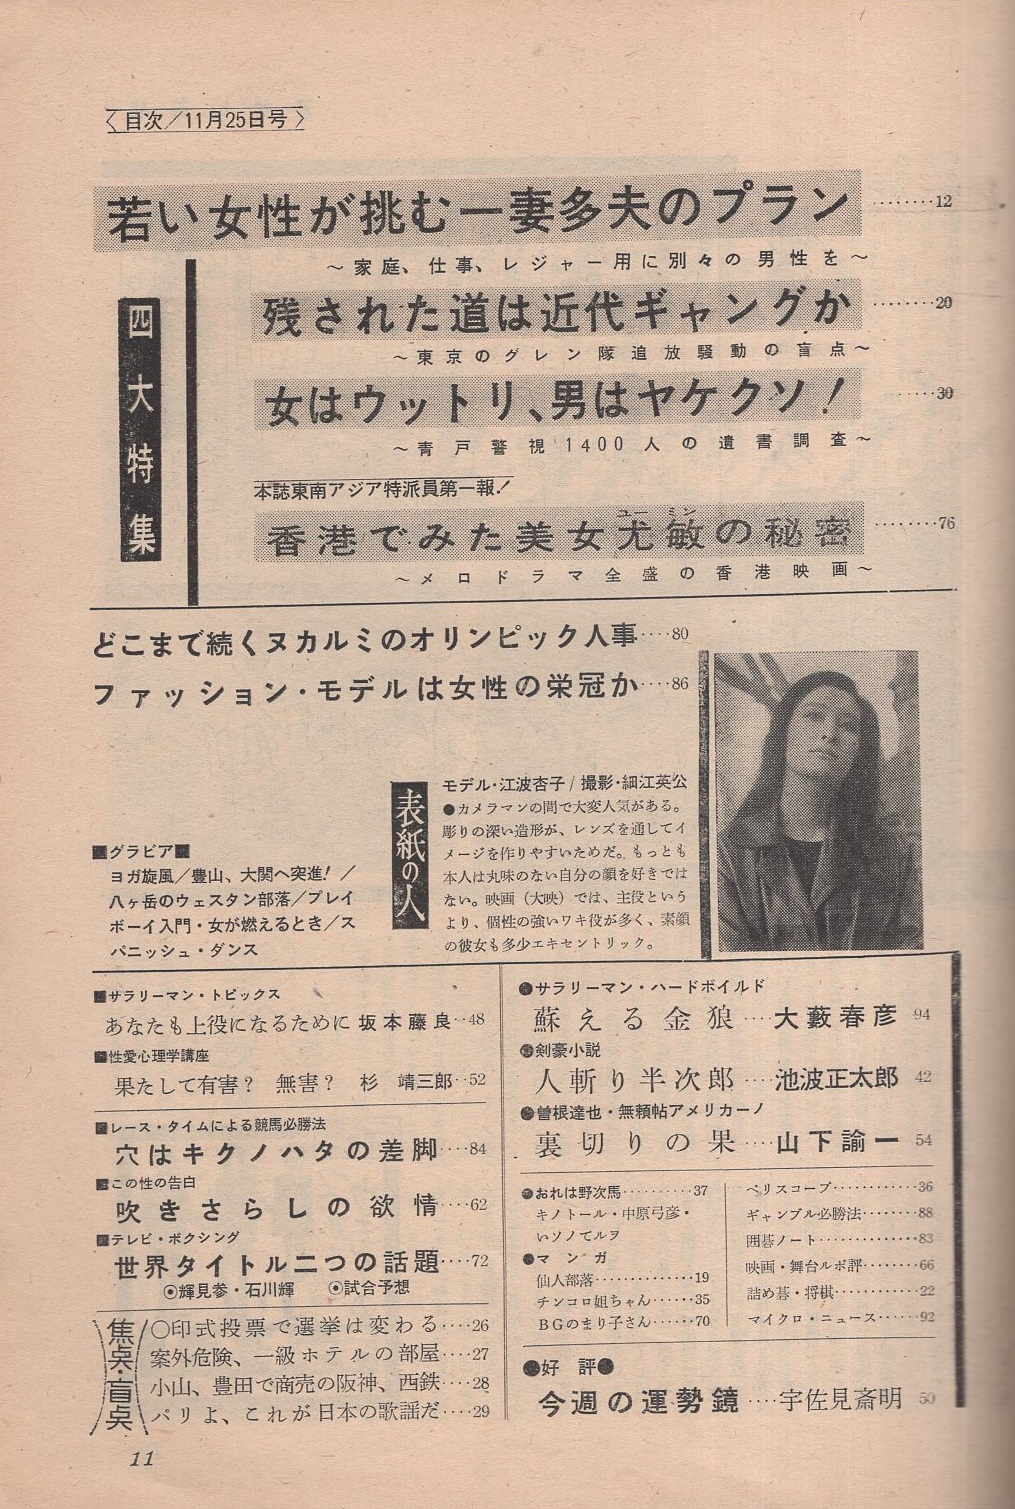 〈目次／11月25日号〉
若い女性が挑む一妻多夫のプラン………12
〜家庭、仕事、レジャー用に別々の男性を〜
四大特集
残された道は近代ギャングか………20
〜東京のグレン隊追放騒動の盲点〜
女はウットリ、男はヤケクソ！……30
〜青戸警視1400人の遺書調査〜
本誌東南アジア特派員第一報！
香港でみた美女尤敏の秘密………76
ユーミン
〜メロドラマ全盛の香港映画〜
どこまで続くヌカルミのオリンピック人事‥‥80
ファッション・モデルは女性の栄冠か‥‥86
表紙の人
モデル・江波杏子／撮影・細江英公
●カメラマンの間で大変人気がある。
彫りの深い造形が、レンズを通してイ
メージを作りやすいためだ。もっとも
本人は丸味のない自分の顔を好きでは
ない。映画（大映）では、主役という
より、個性の強いワキ役が多く、素顔
の彼女も多少エキセントリック。
■グラビア■
ヨガ旋風／豊山、大関へ突進！／
八ヶ岳のウェスタン部落／プレイ
ボーイ入門・女が燃えるとき／ス
パニッシュ・ダンス
■サラリーマン・トピックス
あなたも上役になるために 坂本藤良‥48
■性愛心理学講座
果たして有害？ 無害？ 杉 靖三郎‥52
■レース・タイムによる競馬必勝法
穴はキクノハタの差脚‥‥84
■この性の告白
吹きさらしの欲情‥‥62
■テレビ・ボクシング
世界タイトル二つの話題‥‥72
⦿輝見参・石川輝 ⦿試合予想
焦点・盲点
○印式投票で選挙は変わる‥‥26
案外危険、一級ホテルの部屋‥‥27
小山、豊田で商売の阪神、西鉄‥‥28
パリよ、これが日本の歌謡だ‥‥29
●サラリーマン・ハードボイルド
蘇える金狼‥‥大藪春彦 94
●剣豪小説
人斬り半次郎‥‥池波正太郎 42
●曽根達也・無頼帖アメリカーノ
裏切りの果‥‥山下諭一 54
●おれは野次馬…………37
キノトール・中原弓彦・
いソノてルヲ
●マンガ
仙人部落……………19
チンコロ姐ちゃん……35
BGのまり子さん……70
ペリスコープ…………36
ギャンブル必勝法………88
囲碁ノート……………83
映画・舞台ルポ評………66
詰め碁・将棋……………22
マイクロ・ニュース………92
●好 評●
今週の運勢鏡‥‥宇佐見斎明 50
11